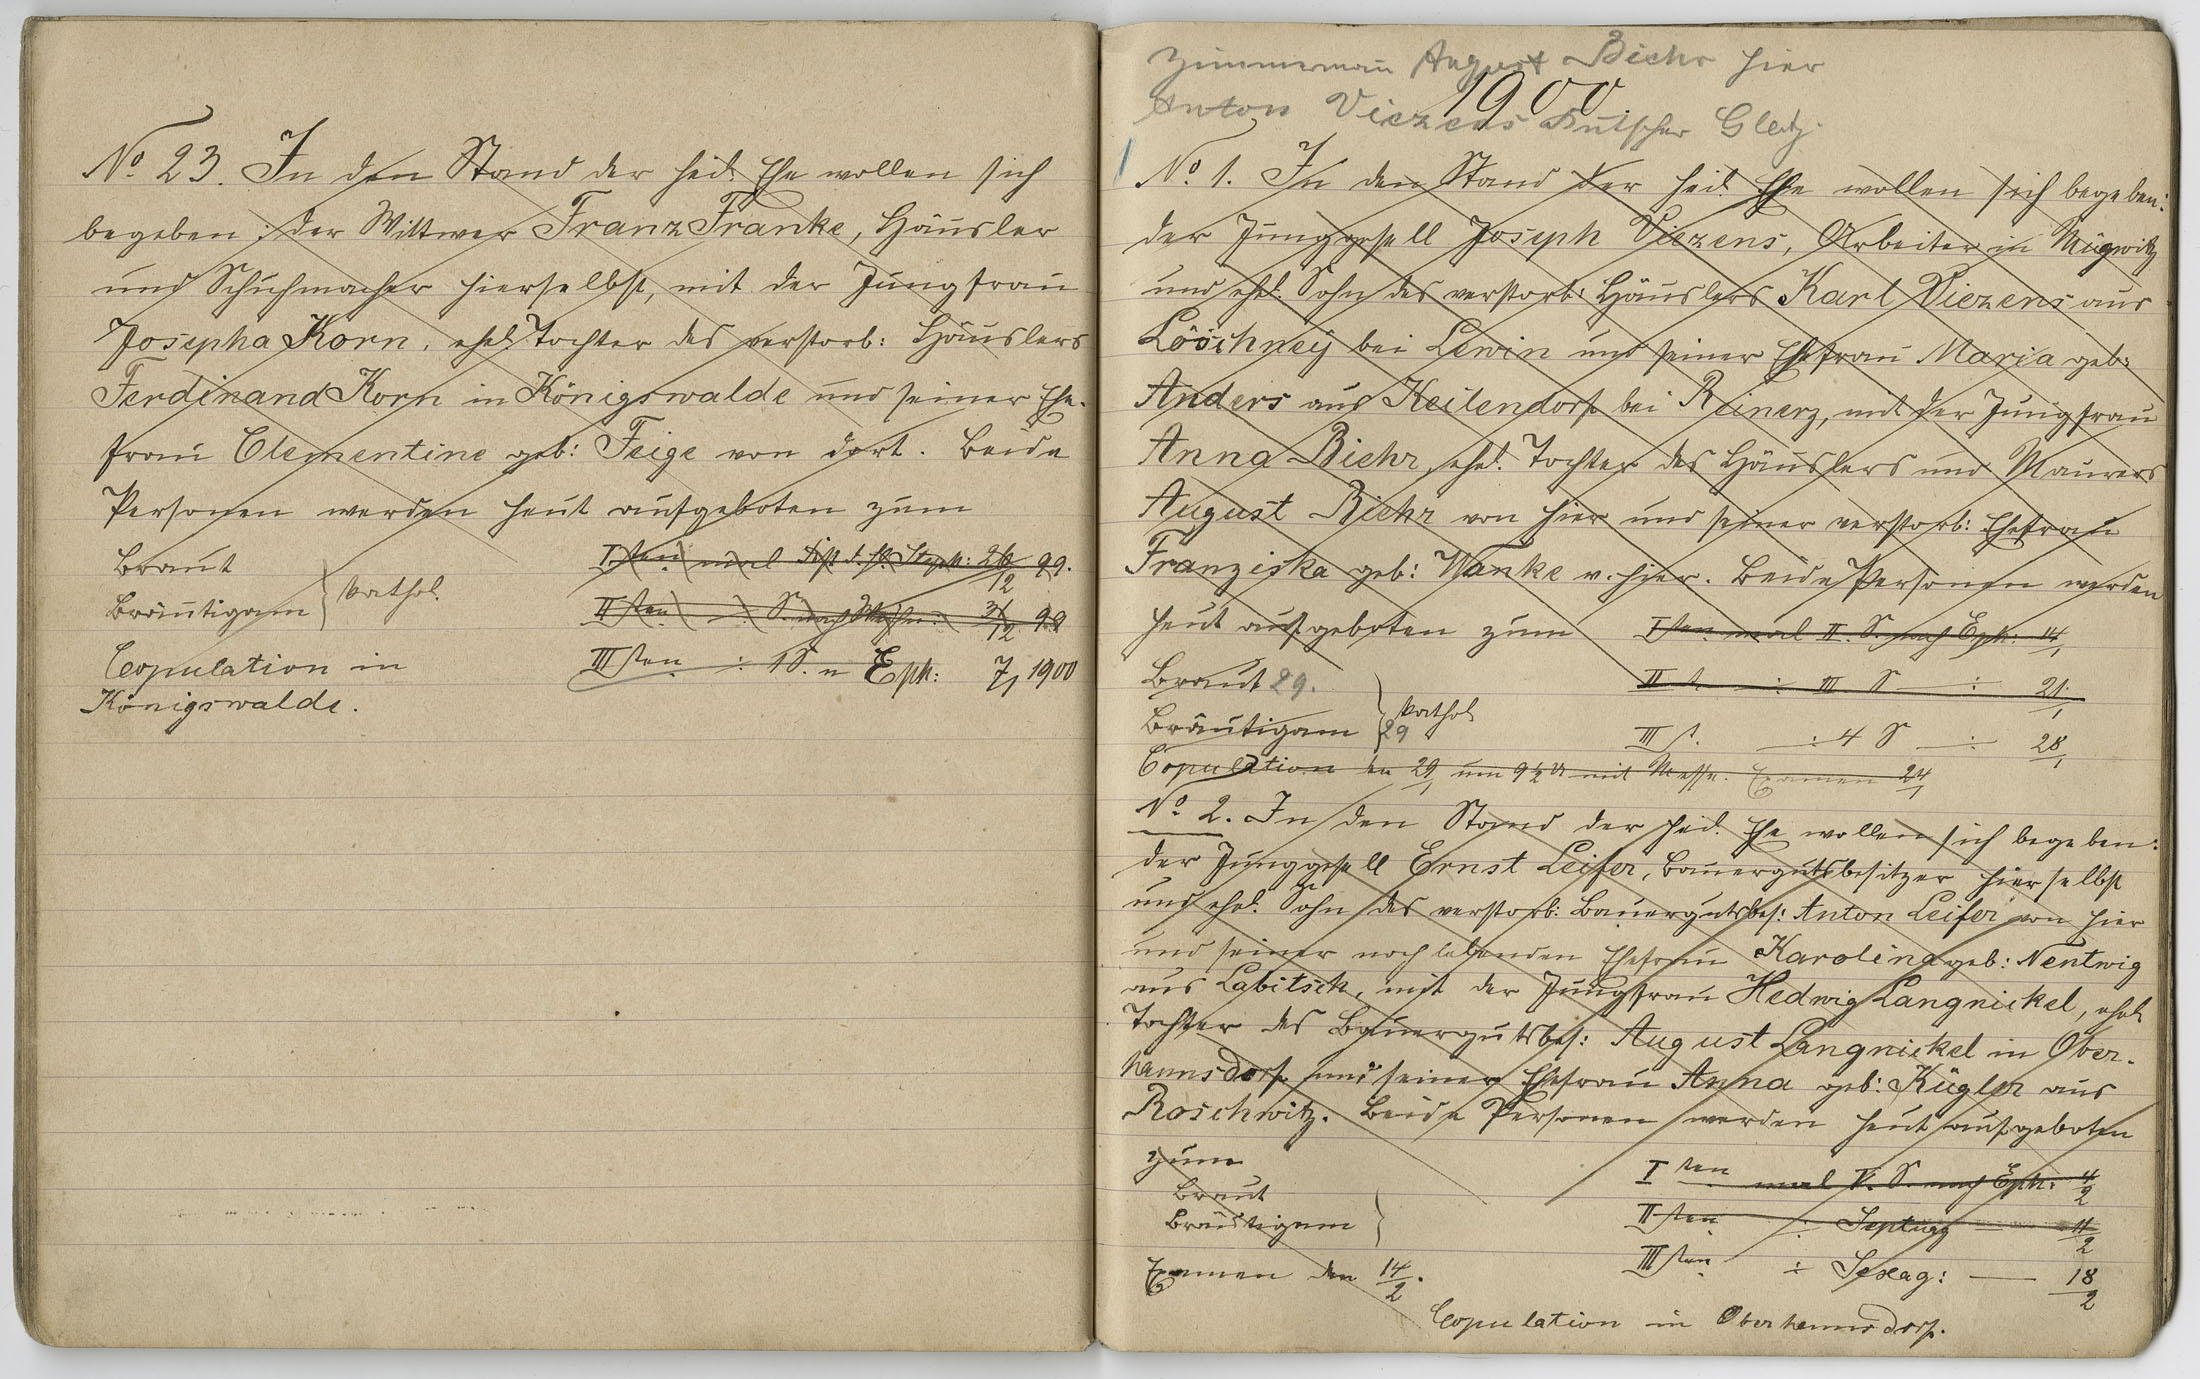 No 23. In den Stand der heil. Ehe wollen sich
begeben: der Wittwer Franz Franke, Häusler
und Schuhmacher hierselbst, mit der Jungfrau
Josepha Korn, ehel. Tochter des verstorb: Häuslers
Ferdinand Korn in Königswalde und seiner Ehe-
frau Clementine geb: Feige von dort. Beide
Personen werden heut aufgeboten zum
Braut
Bräutigam } kathol.
Copulation in
Königswalde.
I sten mal Fest d. hl. Steph: 26/12 99.
II sten : S. nach Weihn: 31/12 99
III sten : 1 S. n Eph: 7/1 1900
Zimmermann August Biehr hier
1900.
Anton Viezens Kutscher Glatz.
No 1. In den Stand der heil. Ehe wollen sich begeben:
der Junggesell Joseph Viezens, Arbeiter in Mügwitz
und ehel. Sohn des verstorb: Häuslers Karl Viezens aus
Löschney bei Lewin und seiner Ehefrau Maria geb:
Anders aus Keilendorf bei Reinerz, mit der Jungfrau
Anna Biehr, ehel. Tochter des Häuslers und Maurers
August Biehr von hier und seiner verstorb: Ehefrau
Franziska geb: Wanke v. hier. Beide Personen werden
heut aufgeboten zum I sten mal II. S. nach Eph: 14/1
Braut 29. II t. : III S : 21/1
Bräutigam 29 } kathol
III t. : 4 S : 28/1
Copulation den 29/1 um 9½ U mit Messe. Examen 24/1
No 2. In den Stand der heil. Ehe wollen sich begeben:
der Junggesell Ernst Leifer, Bauergutsbesitzer hierselbst
und ehel. Sohn des verstorb: Bauergutsbes: Anton Leifer von hier
und seiner noch lebenden Ehefrau Karolina geb: Nentwig
aus Labitsch, mit der Jungfrau Hedwig Langnickel, ehel.
Tochter des Bauergutsbes: August Langnickel in Ober-
hannsdorf und seiner Ehefrau Anna geb: Kügler aus
Roschwitz. Beide Personen werden heut aufgeboten
zum I sten mal V. S. nach Eph: 4/2
Braut
Bräutigam }
II sten : Septuag 11/2
III sten : Sexag: 18/2
Examen den 14/2.
Copulation in Oberhannsdorf.